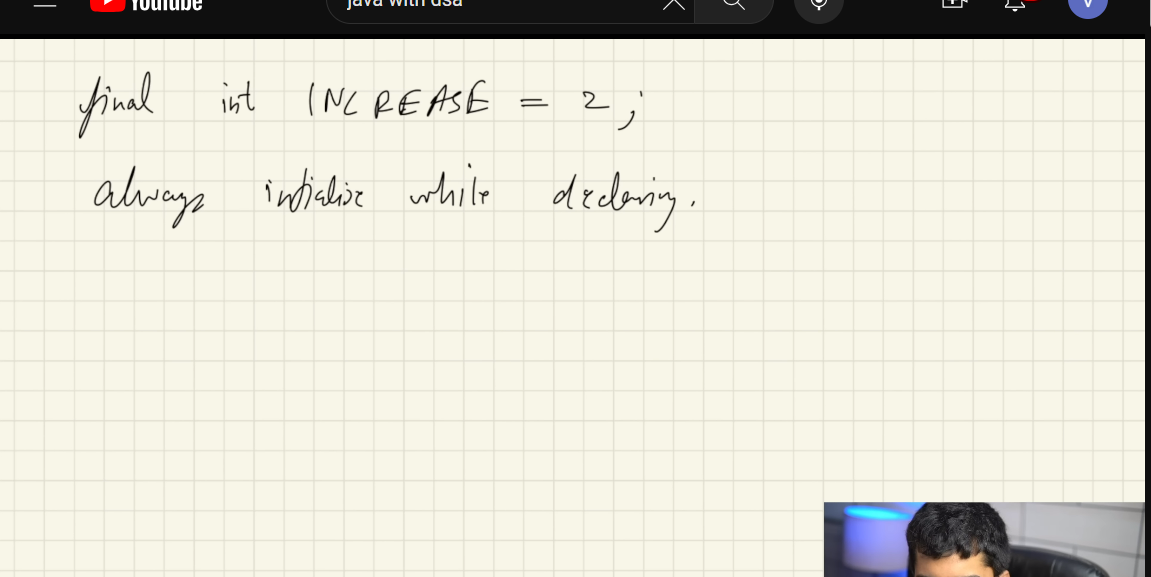 YouTube
java with dsa
V
final int INCREASE = 2;
always intialise while declaring.